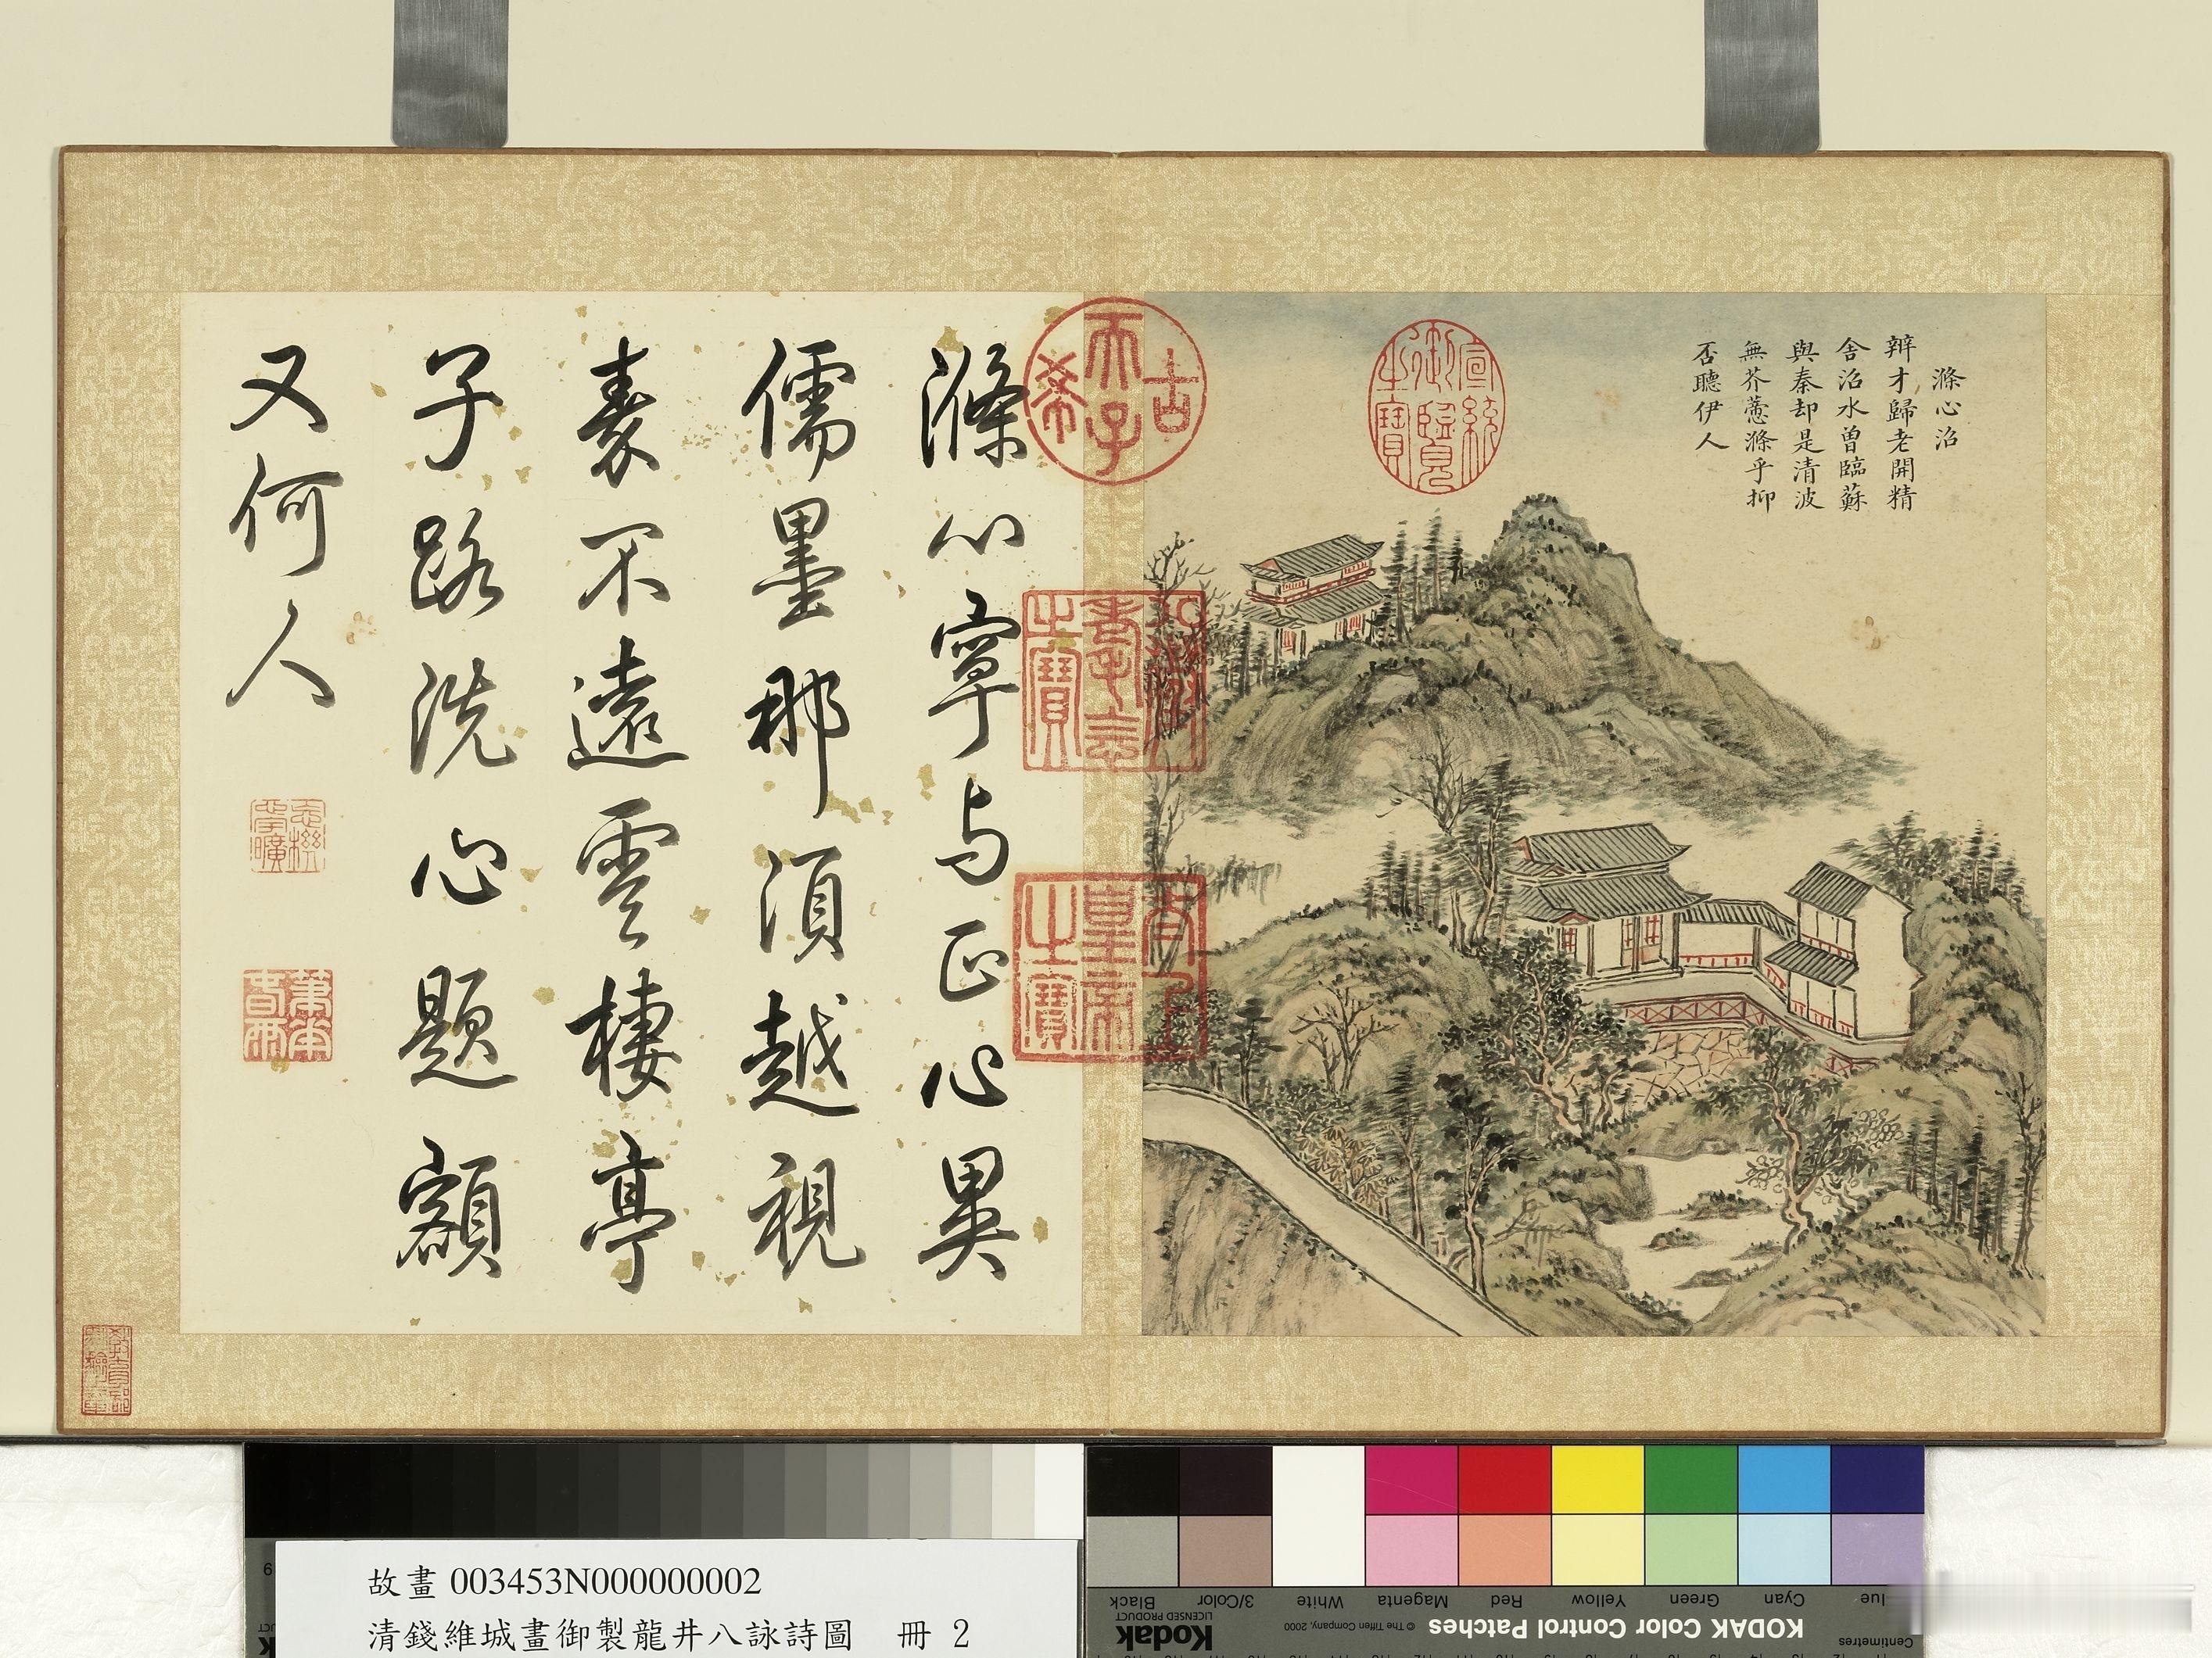 滌心沼
辨才歸老開精
舍沼水曾臨蘇
與秦却是清波
無芥蔕滌乎抑
否聽伊人
古
希
天子
宣統
御覽
之寶
八徵
耄念
之寶
太上
皇帝
之寶
滌心寧與正心異
儒墨那須越視
素不遠雲棲亭
子路洗心題額
又何人
故畫 003453N000000002
清錢維城畫御製龍井八詠詩圖 冊 2
KODAK Color Control Patches
© The Tiffen Company, 2000
Kodak
LICENSED PRODUCT
Black
3/Color
White
Magenta
Red
Yellow
Green
Cyan
Centimetres